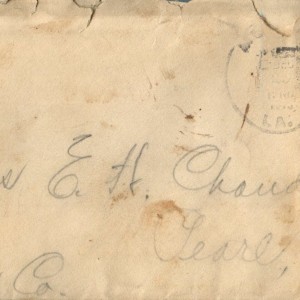 s E. H. Chand
Pearl,
Co.